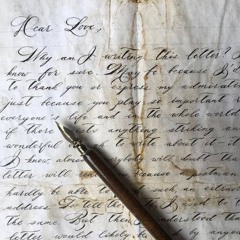 Dear Love,
Why am I writing this letter? I
know for sure. Maybe because I'd
to thank you or express my admiration
just because you play so important
everyone's life and the whole world
if there is anything striking and
wonderful to write about it
I know, almost everybody will that
letter will
hardly be able to such, an
address. To tell the to
the same. But then understood
letter would likely by